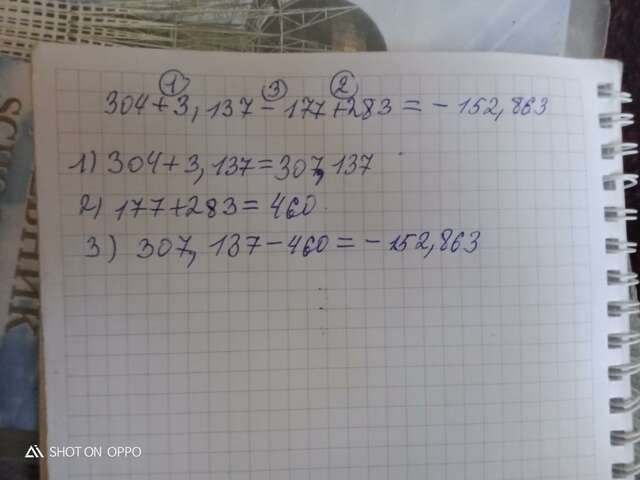 ① ③ ②
304+3,137-177+283=-152,863
1) 304+3,137=307,137
2) 177+283=460
3) 307,137-460=-152,863
SHOT ON OPPO